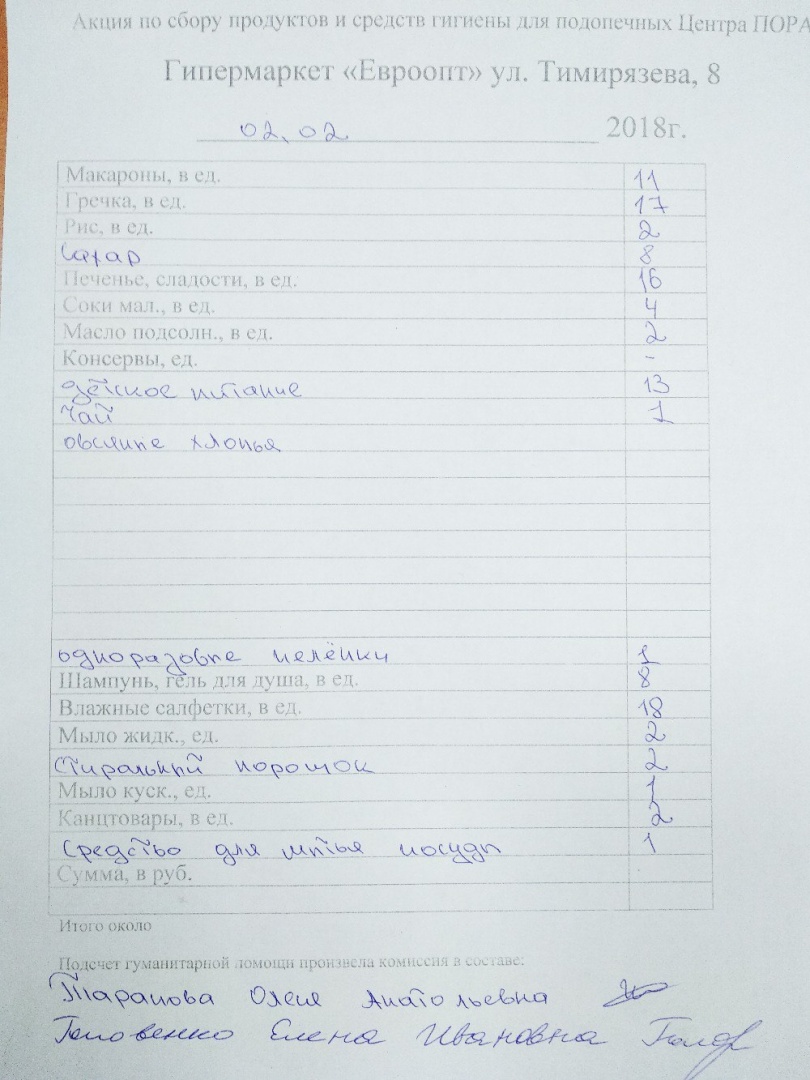 Акция по сбору продуктов и средств гигиены для подопечных Центра ПОРА
Гипермаркет «Евроопт» ул. Тимирязева, 8
02.02 2018г.
Макароны, в ед. 11
Гречка, в ед. 17
Рис, в ед. 2
Сахар 8
Печенье, сладости, в ед. 16
Соки мал., в ед. 4
Масло подсолн., в ед. 2
Консервы, ед. -
детское питание 13
Чай 1
овсяные хлопья
одноразовые пелёнки 1
Шампунь, гель для душа, в ед. 8
Влажные салфетки, в ед. 18
Мыло жидк., ед. 2
Стиральный порошок 2
Мыло куск., ед. 1
Канцтовары, в ед. 2
Средство для мытья посуды 1
Сумма, в руб.
Итого около
Подсчет гуманитарной помощи произвела комиссия в составе:
Таранова Олеся Анатольевна
Елена Ивановна